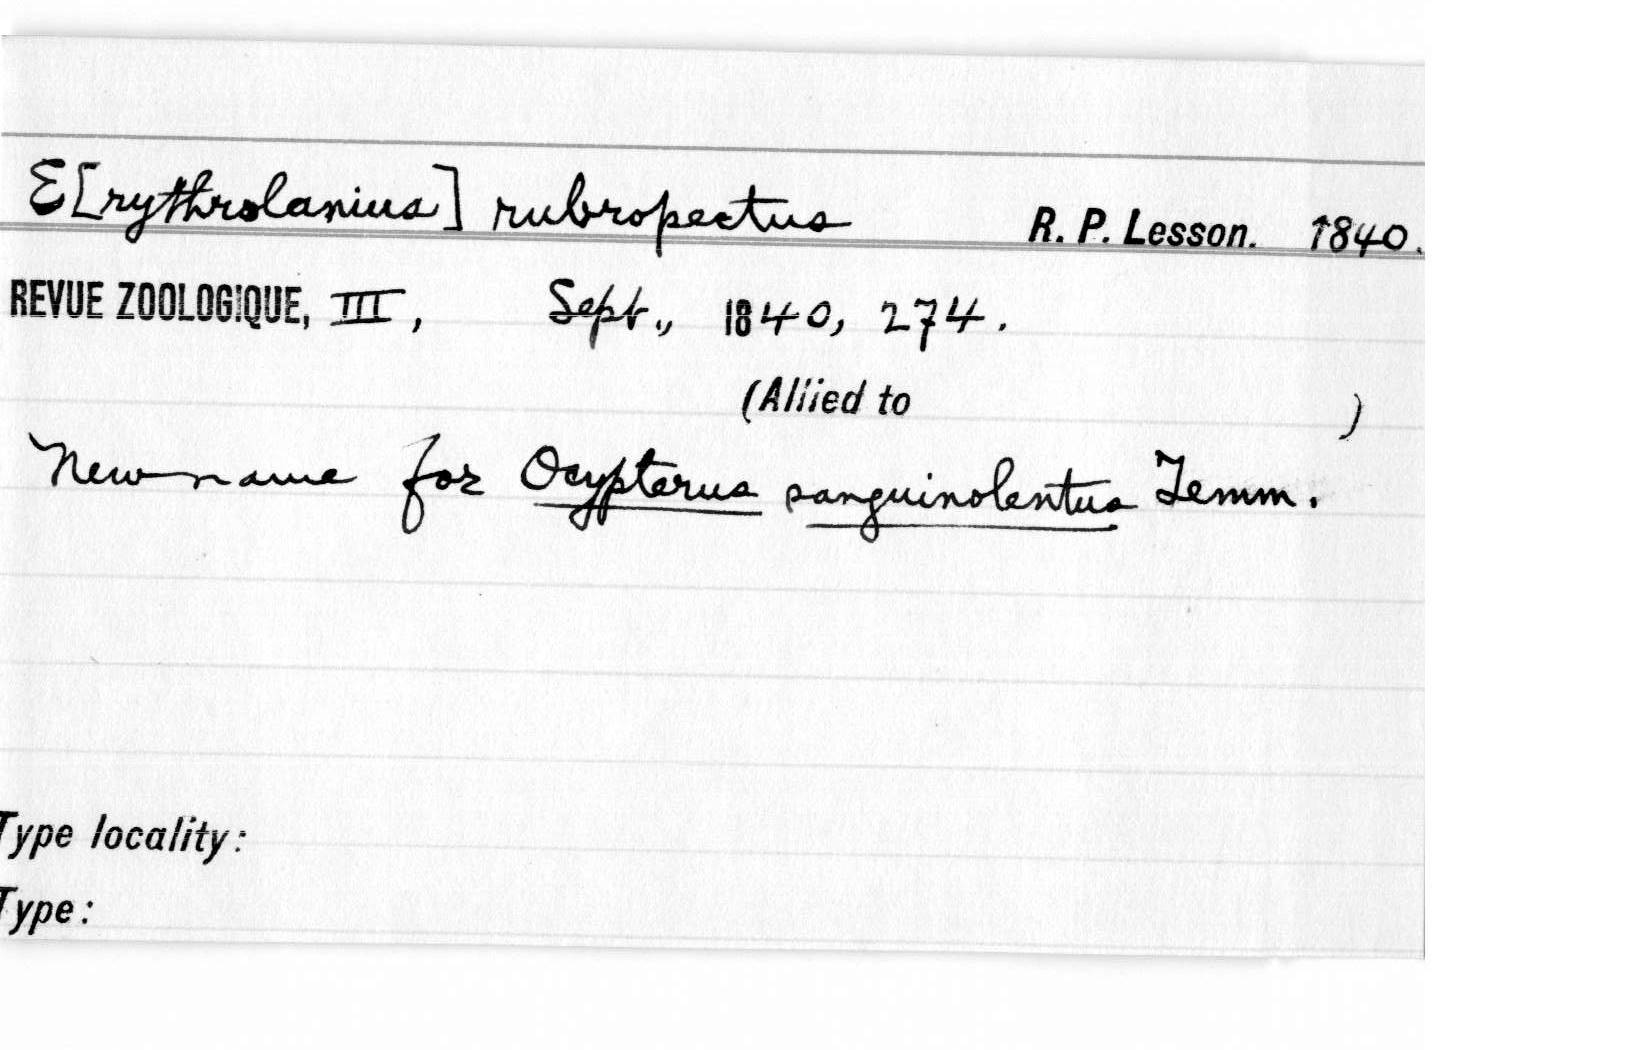 E[rythrolanius] rubropectus R. P. Lesson. 1840.
REVUE ZOOLOGIQUE, III, Sept., 1840, 274.
(Allied to )
New name for Ocypterus sanguinolentus Temm.
Type locality:
Type: